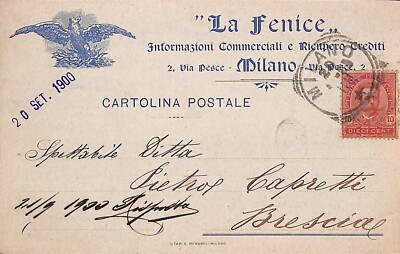 "La Fenice"
Informazioni Commerciali e Ricupero Crediti
2, Via Pesce - Milano - Via Pesce, 2
MILANO
20 SET. 1900
CARTOLINA POSTALE
10 10
DIECI CENT
Spettabile Ditta
Pietro Capretti
21/9 1900 Risposto
Brescia